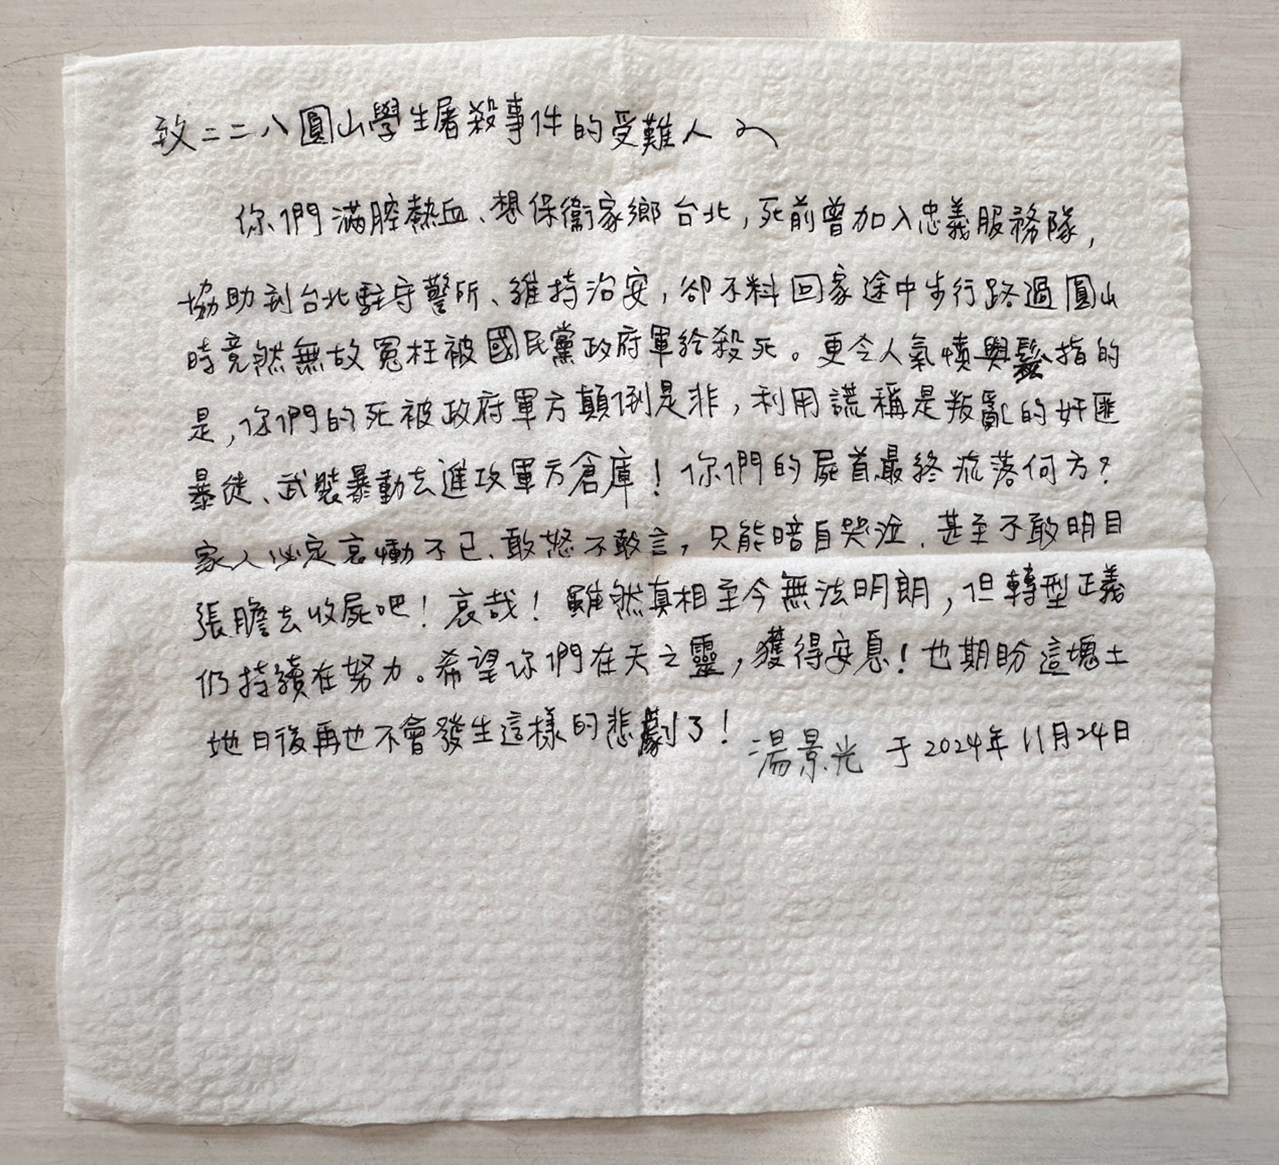 致二二八圓山學生屠殺事件的受難人
你們滿腔熱血、想保衛家鄉台北,死前曾加入忠義服務隊,
協助到台北駐守警所、維持治安,卻不料回家途中步行路過圓山
時竟然無故冤枉被國民黨政府軍給殺死。更令人氣憤與髮指的
是,你們的死被政府軍方顛倒是非,利用謊稱是叛亂的奸匪
暴徒、武裝暴動去進攻軍方倉庫!你們的屍首最終流落何方?
家人必定哀慟不已、敢怒不敢言,只能暗自哭泣、甚至不敢明目
張膽去收屍吧!哀哉!雖然真相至今無法明朗,但轉型正義
仍持續在努力。希望你們在天之靈,獲得安息!也期盼這塊土
地日後再也不會發生這樣的悲劇了!
湯景光 于2024年11月24日